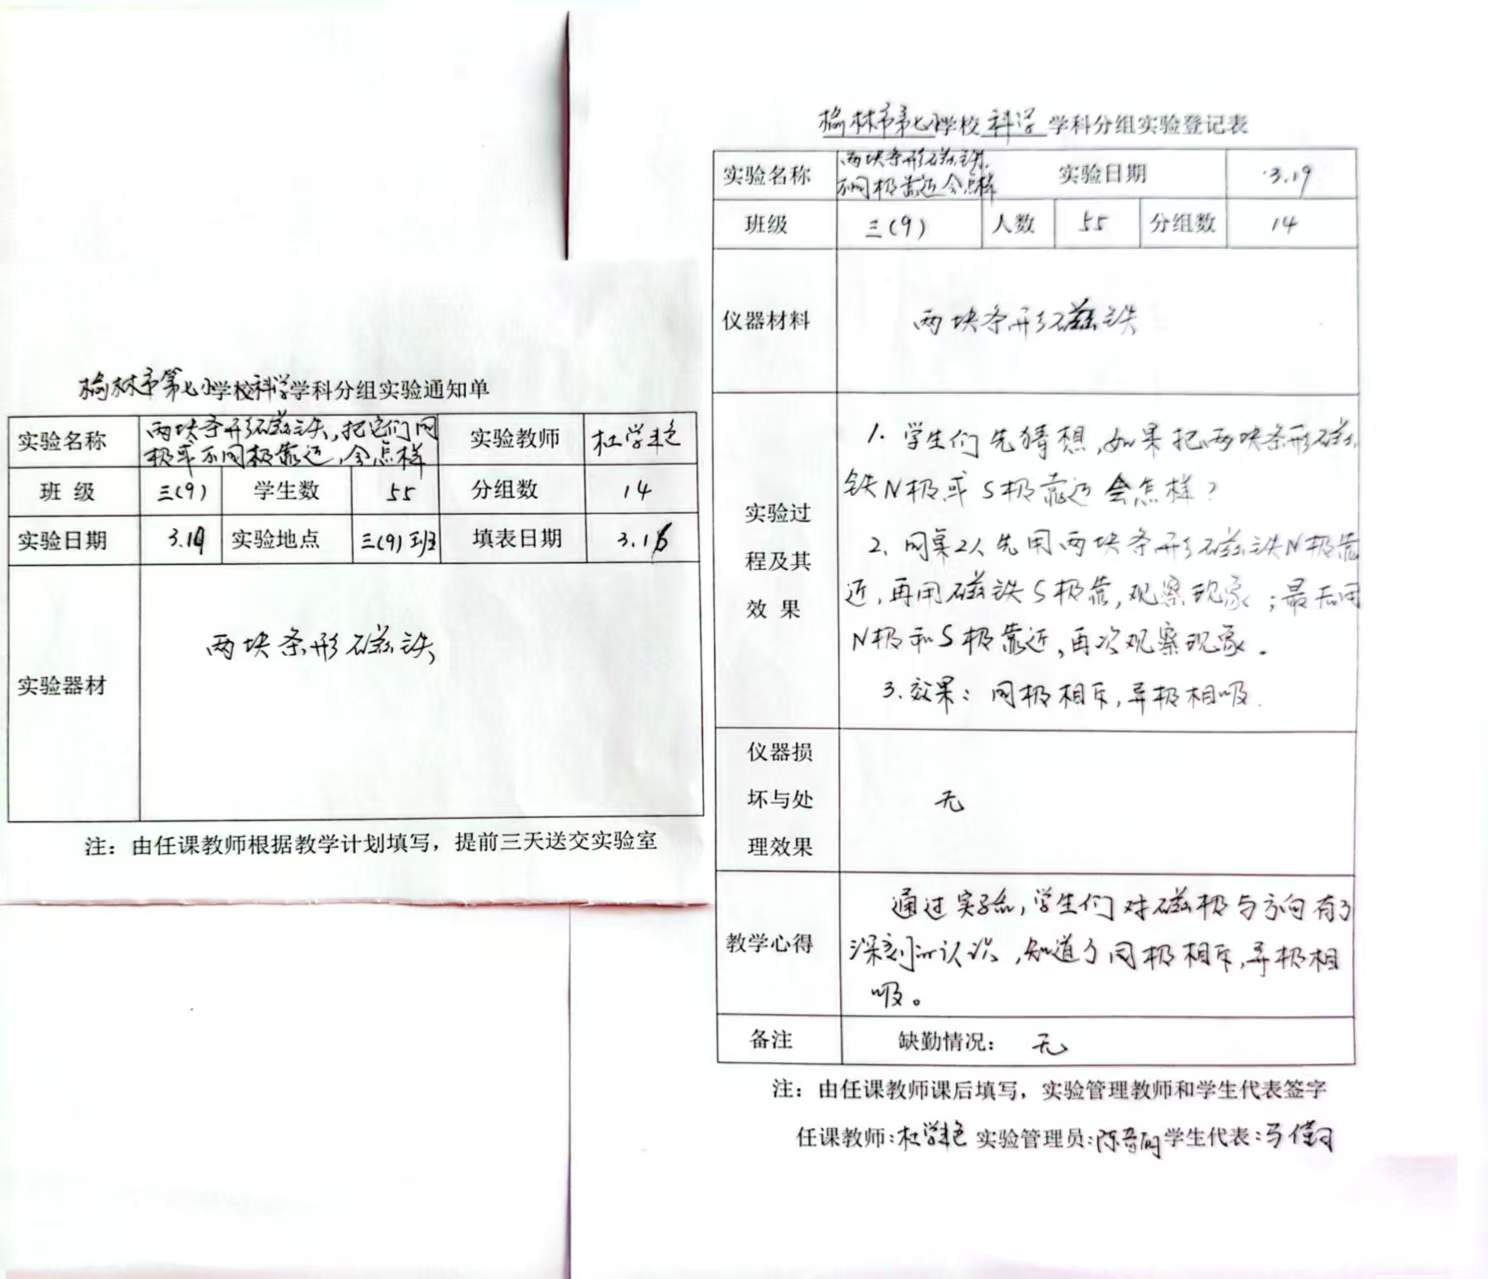 榆林市第七小学校科学学科分组实验通知单
实验名称 两块条形磁铁,把它们同极或不同极靠近,会怎样 实验教师 杜学艳
班 级 三(9) 学生数 55 分组数 14
实验日期 3.19 实验地点 三(9)班 填表日期 3.16
实验器材 两块条形磁铁
注：由任课教师根据教学计划填写，提前三天送交实验室
榆林市第七小学校 科学 学科分组实验登记表
实验名称 两块条形磁铁不同极靠近会怎样 实验日期 3.19
班级 三(9) 人数 55 分组数 14
仪器材料 两块条形磁铁
实验过程及其效 果
1. 学生们先猜想,如果把两块条形磁
铁N极或S极靠近会怎样?
2、同桌2人先用两块条形磁铁N极靠
近,再用磁铁S极靠,观察现象;最后用
N极和S极靠近,再次观察现象。
3.效果:同极相斥,异极相吸.
仪器损坏与处理效果 无
教学心得
通过实验,学生们对磁极与方向有了
深刻的认识,知道了同极相斥,异极相
吸。
备注 缺勤情况： 无
注：由任课教师课后填写，实验管理教师和学生代表签字
任课教师:杜学艳 实验管理员:陈 学生代表:马